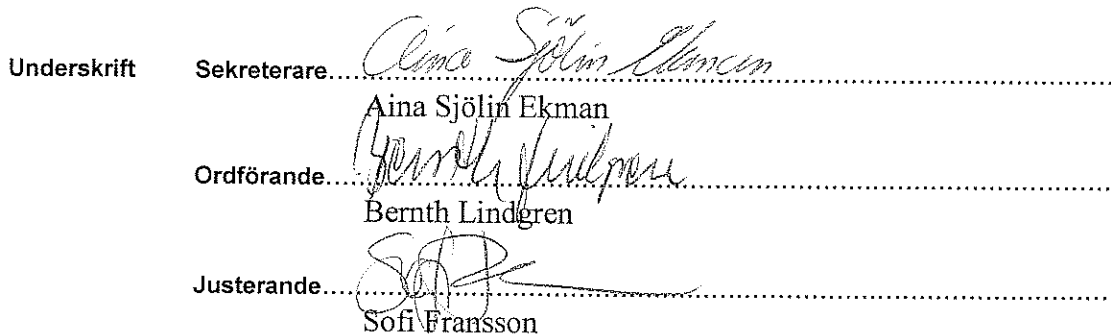 Underskrift Sekreterare.... Aina Sjölin Ekman
Aina Sjölin Ekman
Ordförande.... Bernth Lindgren
Bernth Lindgren
Justerande....
Sofi Fransson